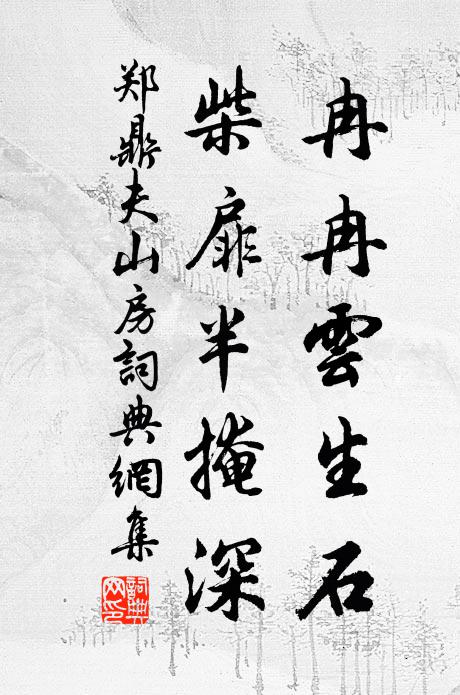 冉冉雲生石
柴扉半掩深
郑鼎夫山房詞典網集
詞典網印